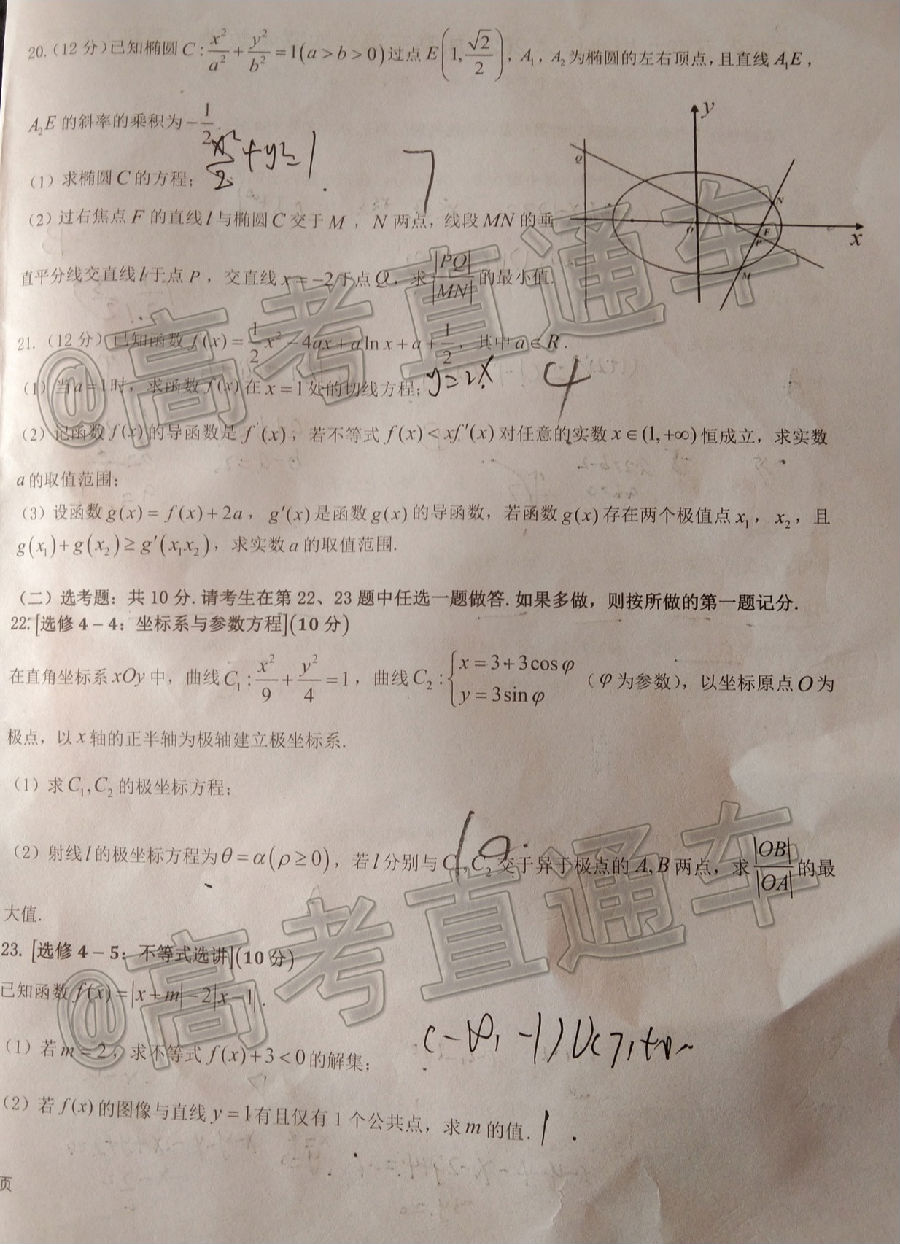 20. (12 分) 已知椭圆 C : x²/a² + y²/b² = 1(a > b > 0) 过点 E(1, √2/2), A₁, A₂ 为椭圆的左右顶点, 且直线 A₁E,
A₂E 的斜率的乘积为 -1/2.
(1) 求椭圆 C 的方程; x²/2 + y² = 1
(2) 过右焦点 F 的直线 l 与椭圆 C 交于 M, N 两点, 线段 MN 的垂
直平分线交直线 l 于点 P, 交直线 x = -2 于点 Q, 求 |PQ|/|MN| 的最小值.
y
x
N
M
21. (12 分) 已知函数 f(x) = 1/2 x² - 4ax + a ln x + a + 1/2, 其中 a ∈ R.
(1) 当 a = 1 时, 求函数 f(x) 在 x = 1 处的切线方程;
(2) 记函数 f(x) 的导函数是 f′(x), 若不等式 f(x) < xf′(x) 对任意的实数 x ∈ (1, +∞) 恒成立, 求实数
a 的取值范围;
(3) 设函数 g(x) = f(x) + 2a, g′(x) 是函数 g(x) 的导函数, 若函数 g(x) 存在两个极值点 x₁, x₂, 且
g(x₁) + g(x₂) ≥ g′(x₁x₂), 求实数 a 的取值范围.
(二) 选考题: 共 10 分. 请考生在第 22、23 题中任选一题做答. 如果多做, 则按所做的第一题记分.
22. [选修 4-4: 坐标系与参数方程](10 分)
在直角坐标系 xOy 中, 曲线 C₁ : x²/9 + y²/4 = 1, 曲线 C₂ : { x = 3 + 3cos φ, y = 3sin φ (φ 为参数), 以坐标原点 O 为
极点, 以 x 轴的正半轴为极轴建立极坐标系.
(1) 求 C₁, C₂ 的极坐标方程;
(2) 射线 l 的极坐标方程为 θ = α(ρ ≥ 0), 若 l 分别与 C₁, C₂ 交于异于极点的 A, B 两点, 求 |OB|/|OA| 的最
大值.
23. [选修 4-5: 不等式选讲](10 分)
已知函数 f(x) = |x + m| - 2|x - 1|.
(1) 若 m = 2, 求不等式 f(x) + 3 < 0 的解集; (-∞, -1)∪(7, +∞
(2) 若 f(x) 的图像与直线 y = 1 有且仅有 1 个公共点, 求 m 的值. 1.
页
@高考直通车
@高考直通车